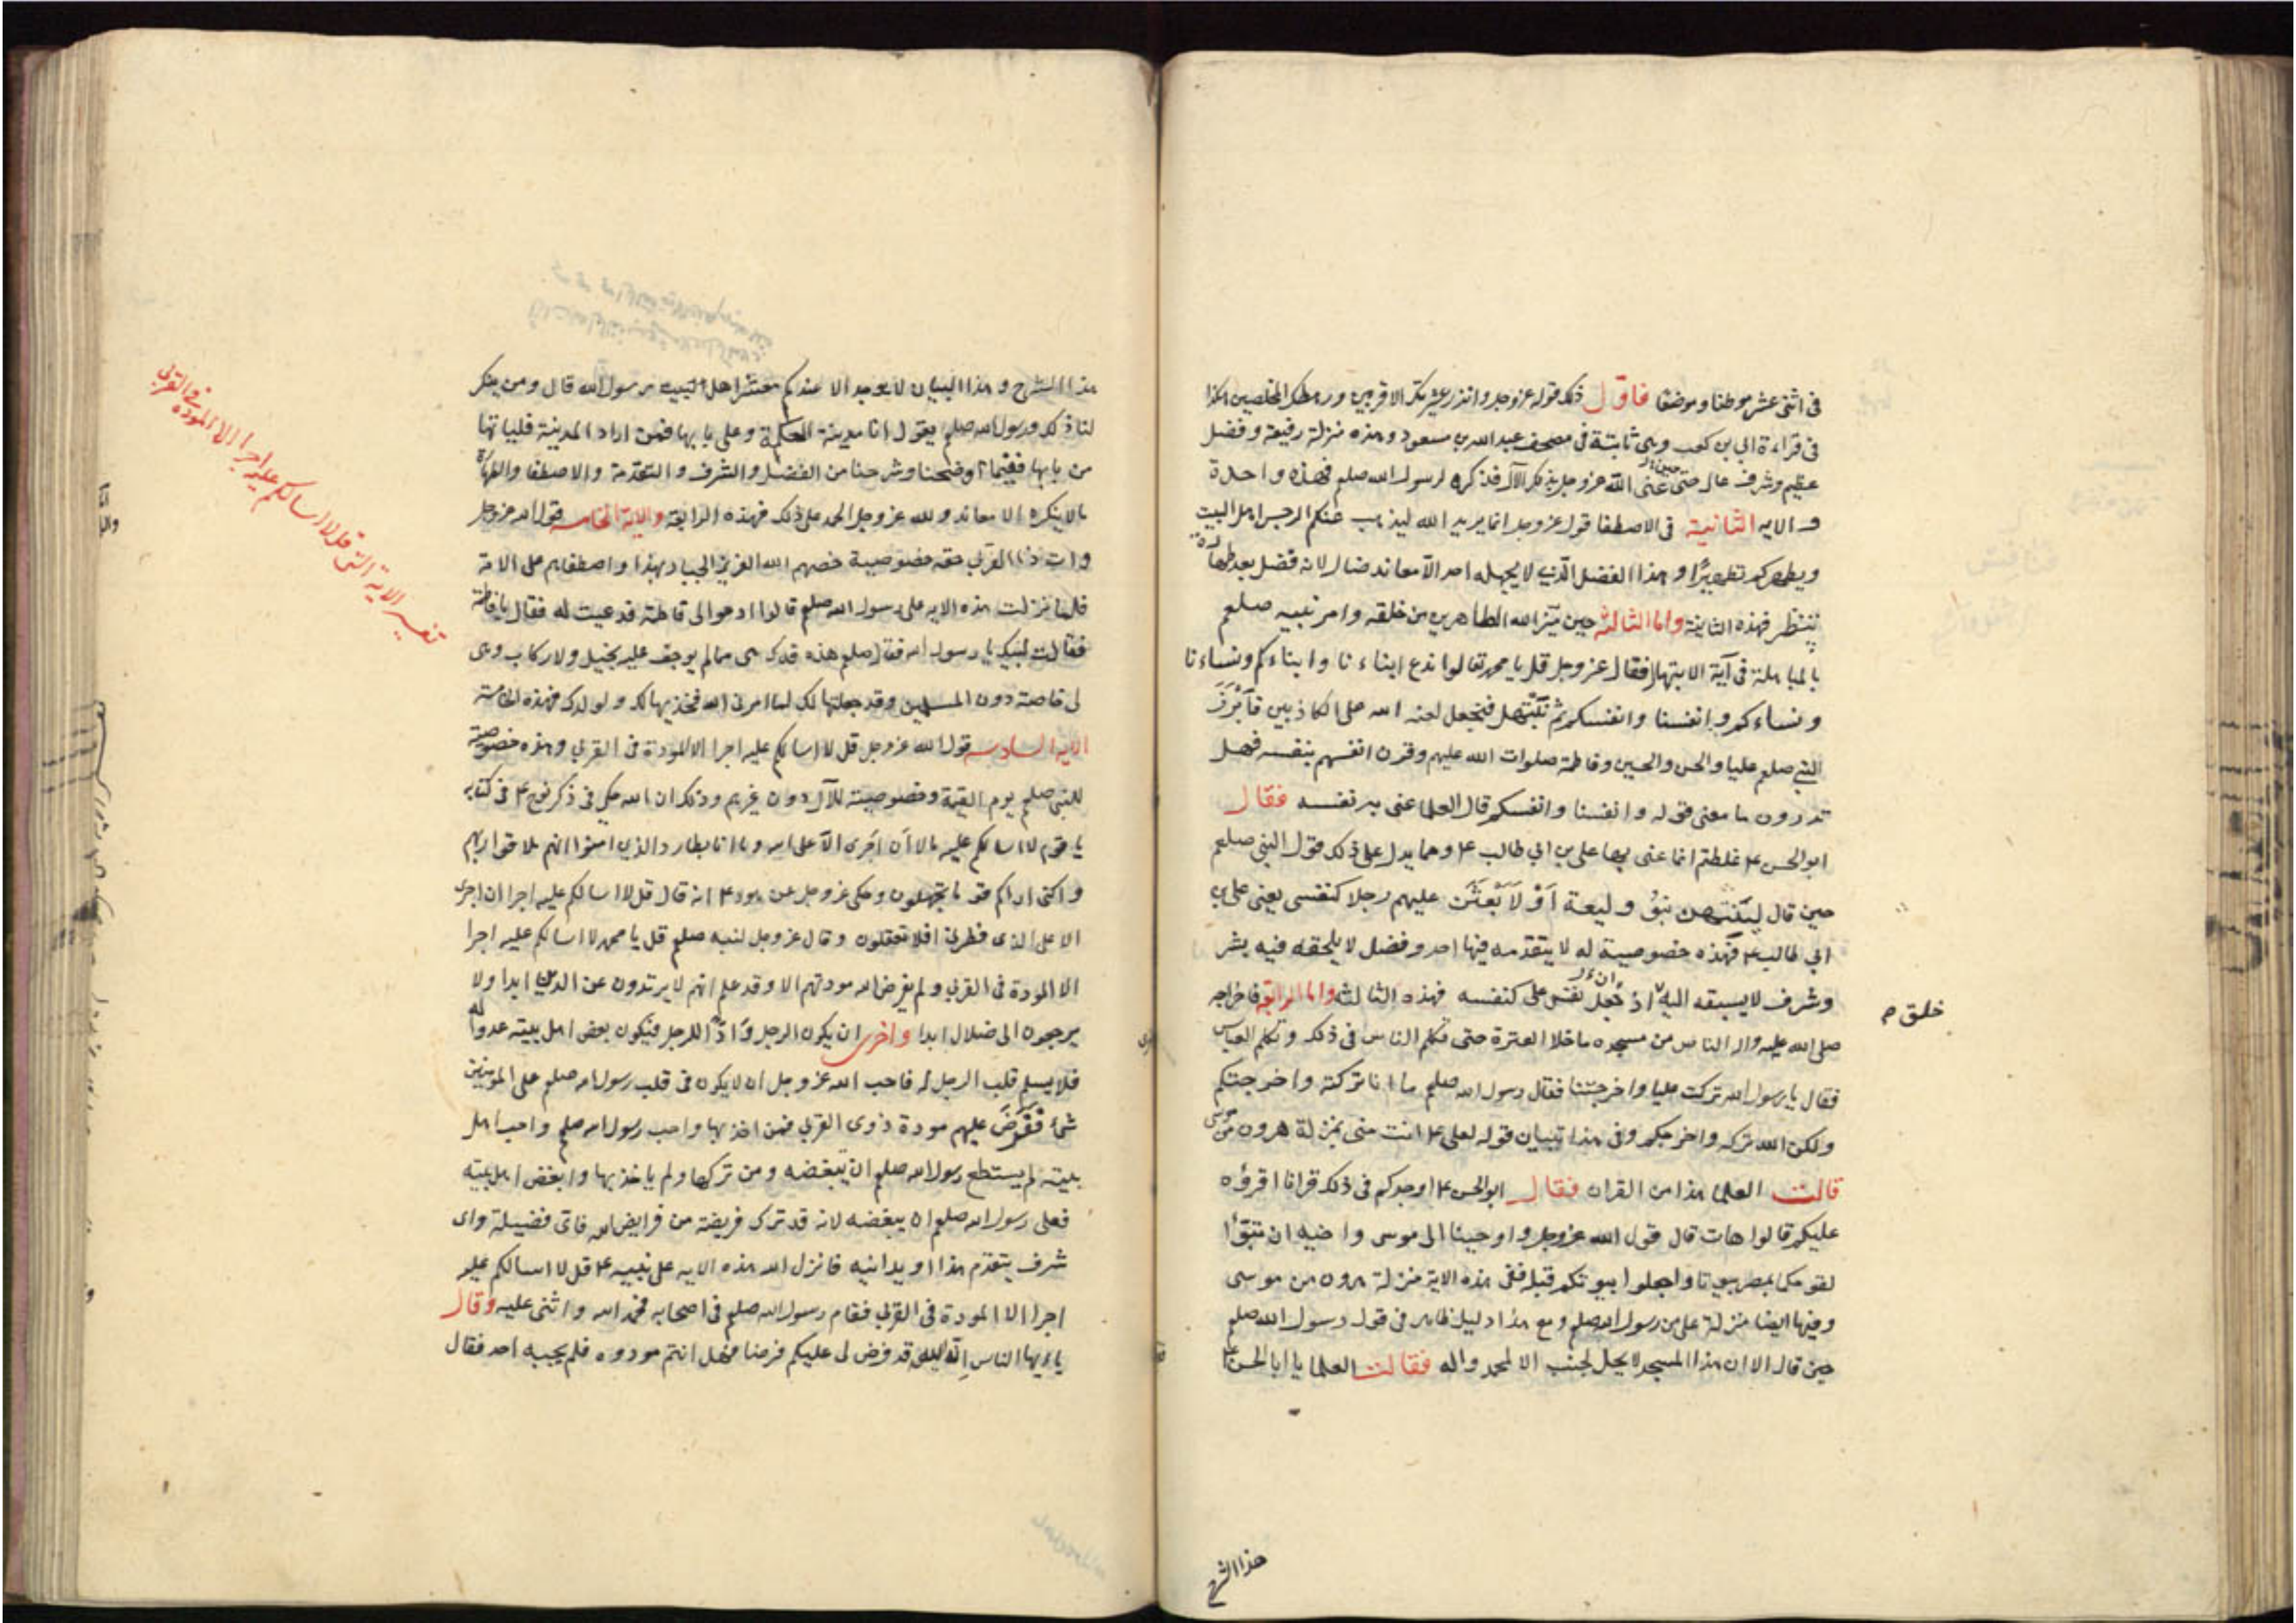 فى اثنى عشر موطنا وموضعا فاول ذلك قوله عزوجل وانذر عشيرتك الاقربين ورهطك المخلصين هكذا
فى قراءة ابي بن كعب وهى ثابتة فى مصحف عبدالله بن مسعود وهذه منزلة رفيعة وفضل
عظيم وشرف عال حين عنى الله عزوجل بذكر الآل فذكره لرسول الله صلعم فهذه واحدة
والايه الثانية فى الاصطفا قول عزوجل انما يريد الله ليذهب عنكم الرجس اهل البيت
ويطهركم تطهيرًا وهذا الفضل الّذي لا يجهله احد الّا معاند ضال لانه فضل بعد طهارة
تنتظر فهذه الثانية واما الثالثه حين ميّز الله الطاهرين من خلقه وامر نبيه صلعم
بالمباهلة فى آية الابتهال فقال عزوجل قل يا محمد تعالوا ندع ابناءنا وابناءكم ونساءنا
ونساءكم وانفسنا وانفسكم ثم نَبْتَهل فنجعل لعنه الله على الكاذبين فاَبْرَزَ
النبي صلعم عليا والحسن والحسين وفاطمة صلوات الله عليهم وقرن انفسهم بنفسه فهل
تدرون ما معنى قوله وانفسنا وانفسكم قال العلما عنى به نفسه فقال
ابو الحسن ع غلطتم انما عنى بها على بن ابي طالب ع ومما يدل على ذلك قول النبي صلعم
حين قال ليَنْتَهِيَن بَنُو وليعة اَوْ لاَبْعَثَن عليهم رجلا كنفسى يعنى على بن
ابي طالب ع فهذه خصوصية له لا يتقدمه فيها احد وفضل لا يلحقه فيه بشر
وشرف لا يسبقه اليه اذ جعل نفس على كنفسه فهذه الثالثة واما الرابعة فاخراجه
خلق م
صلى الله عليه واله الناس من مسجده ما خلا العترة حتى تكلم الناس فى ذلك وتكلم العباس
فقال يا رسول الله تركت عليا واخرجتنا فقال رسول الله صلعم ما انا تركته واخرجتكم
ولكن الله تركه واخرجكم وفى هذا تبيان قوله لعلى ع انت منى بمنزلة هرون من موسى
قالت العلما هذا من القران فقال ابو الحسن ع اوجدكم فى ذلك قرانا اقرؤه
عليكم قالوا هات قال قول الله عزوجل واوحينا الى موسى واخيه ان تبوّأا
لقومكما بمصر بيوتا واجعلوا بيوتكم قبلة ففى هذه الاية منزلة هرون من موسى
وفيها ايضا منزلة على من رسول الله صلعم ومع هذا دليل ظاهر فى قول رسول الله صلعم
حين قال الا ان هذا المسجد لا يحل لجنب الا لمحمد واله فقالت العلما يا ابا الحسن
هذا الشرح
هذا الشرح وهذا البيان لا يوجد الا عندكم معشر اهل البيت رسول الله قال ومن ينكر
لنا ذلك ورسول الله صلعم يقول انا مدينة الحكمة وعلى بابها فمن اراد المدينة فلياتها
من بابها ففيما اوضحنا وشرحنا من الفضل والشرف والتقدمة والاصطفا والطهارة
ما لا ينكره الا معاند ولله عزوجل الحمد على ذلك فهذه الرابعة والاية الخامسه قول الله عزوجل
وات ذا القربى حقه خصوصية خصهم الله العزيز الجبار بهذا واصطفاهم على الامة
فلما نزلت هذه الايه على رسول الله صلعم قالوا ادعوا الى فاطمة فدعيت له فقال يا فاطمة
فقالت لبيك يا رسول الله فقال صلعم هذه فدك هى ممالم يوجف عليه بخيل ولا ركاب وهى
لى خاصة دون المسلمين وقد جعلتها لك لما امرنى الله فخذيها لك ولولدك فهذه الخامسة
الايه السادسه قول الله عزوجل قل لا اسالكم عليه اجرا الا المودة فى القربى وهذه خصوصية
للنبي صلعم يوم القيمة وخصوصية للآل دون غيرهم وذلك ان الله حكى فى ذكر نوح ع فى كتابه
يا قوم لا اسالكم عليه مالا اَن اَجرى الّا على الله وما انا بطارد الذين امنوا انهم ملاقوا ربهم
ولكنى اراكم قوما تجهلون وحكى عزوجل عن هود ع انه قال قل لا اسالكم عليه اجرا ان اجرى
الا على الذى فطرنى افلا تعقلون وقال عزوجل لنبيه صلعم قل يا محمد لا اسالكم عليه اجرا
الا المودة فى القربى ولم يفرض الله مودتهم الا وقد علم انهم لا يرتدون عن الدين ابدا ولا
يرجعون الى ضلال ابدا واخرى ان يكون الرجل وَادّا للرجل فيكون بعض اهل بيته عدوا له
فلا يسلم قلب الرجل له فاحب الله عزوجل ان لا يكون فى قلب رسول الله صلعم على المومنين
شئ ففَرَضَ عليهم مودة ذوى القربى فمن اخذ بها واحب رسول الله صلعم واحب اهل
بيته لم يستطع رسول الله صلعم ان يبغضه ومن تركها ولم ياخذ بها وابغض اهل بيته
فعلى رسول الله صلعم ان يبغضه لانه قد ترك فريضة من فرايض الله فاى فضيلة واى
شرف يتقدم هذا او يدانيه فانزل الله هذه الايه على نبيه ع قل لا اسالكم عليه
اجرا الا المودة فى القربى فقام رسول الله صلعم فى اصحابه فحمد الله واثنى عليه وقال
يا ايها الناس ان الله قد فرض لى عليكم فرضا فهل انتم مودوه فلم يجبه احد فقال
تفسير الاية التى قل لا اسالكم عليه اجرا الا المودة فى القربى